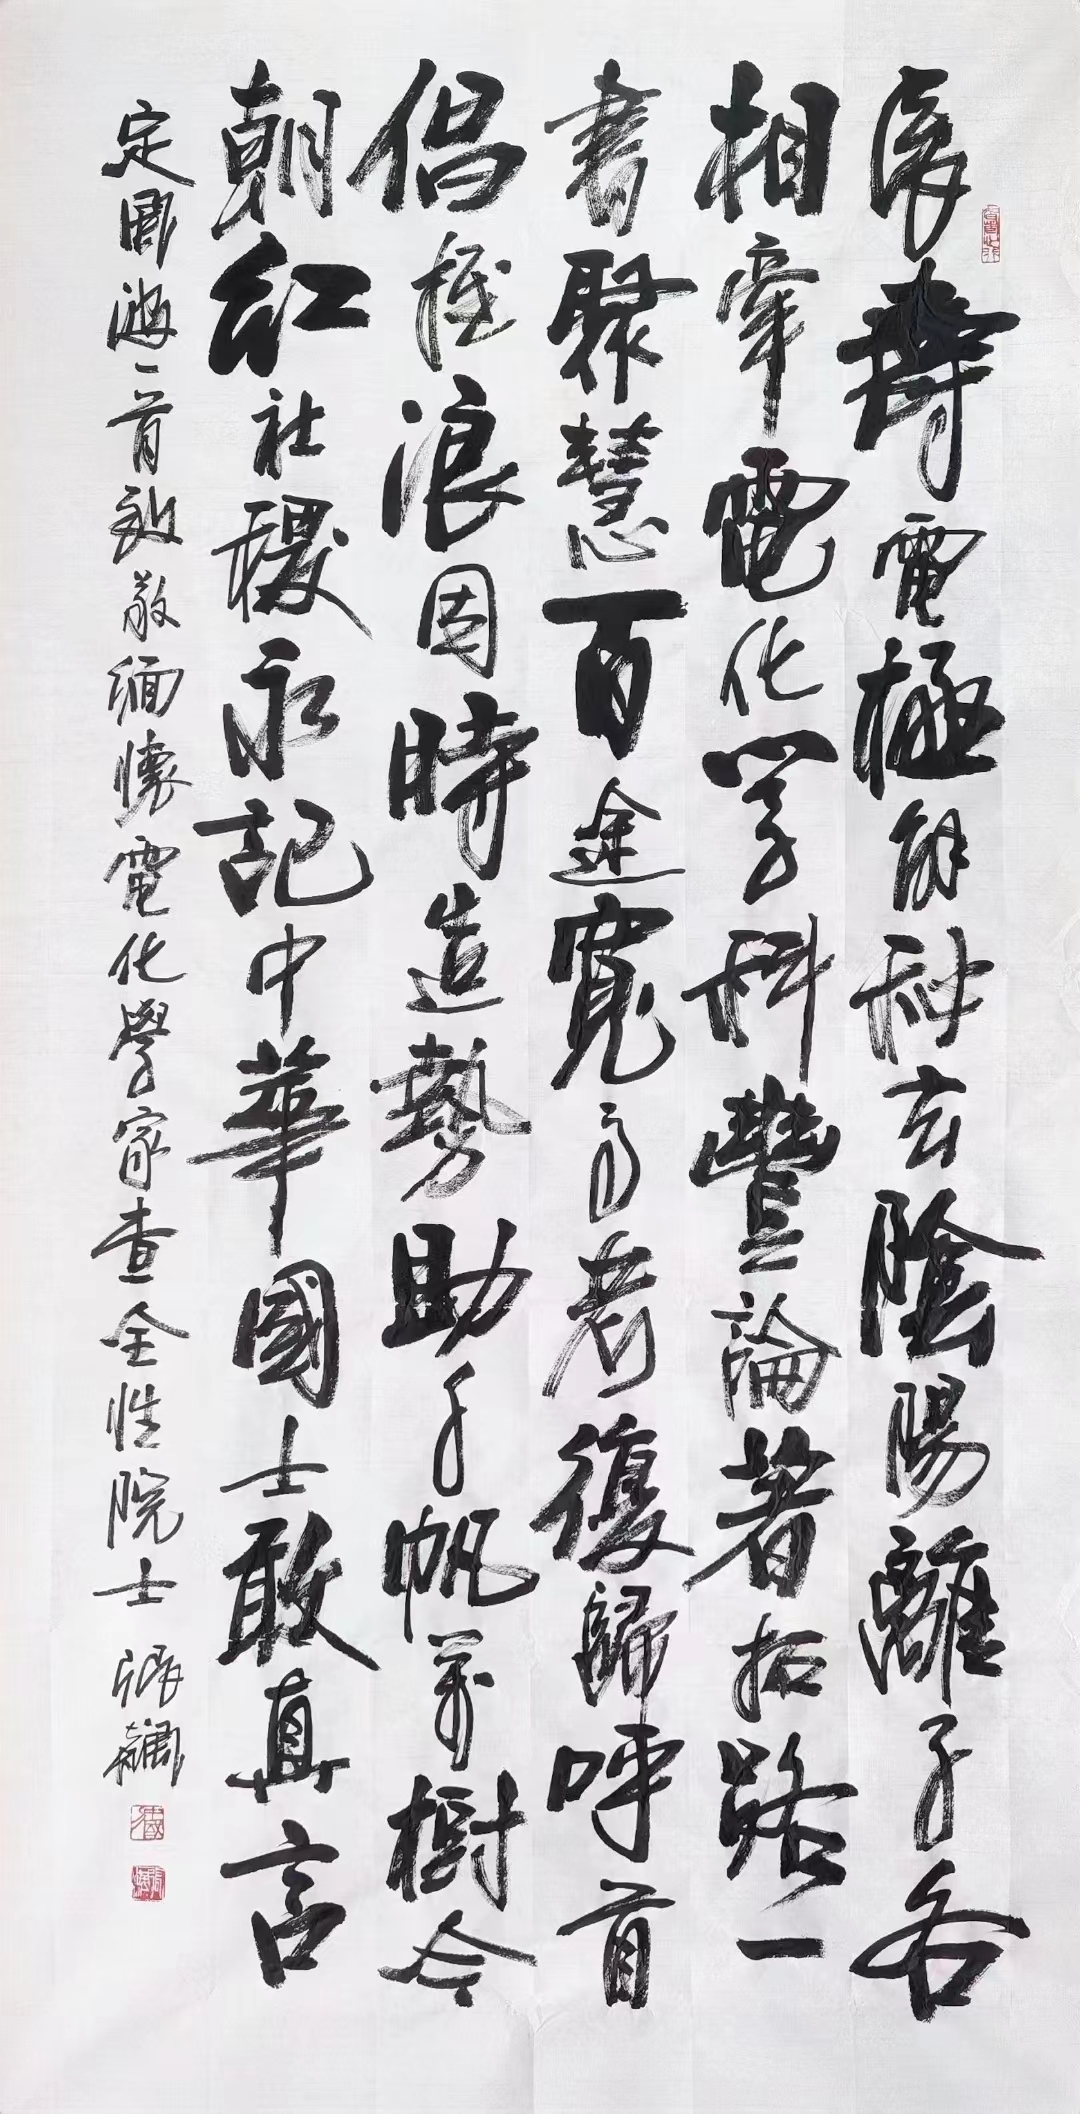 電極解秘玄陰陽離子各
相牽電化學科豐論著拓路一
書聚慧百途寬高考復歸呼首
倡推浪因時造勢助千帆萬樹今
朝紅社稷永記中華國士敢真言
定風波一首致敬緬懷電化學家查全性院士 張飆